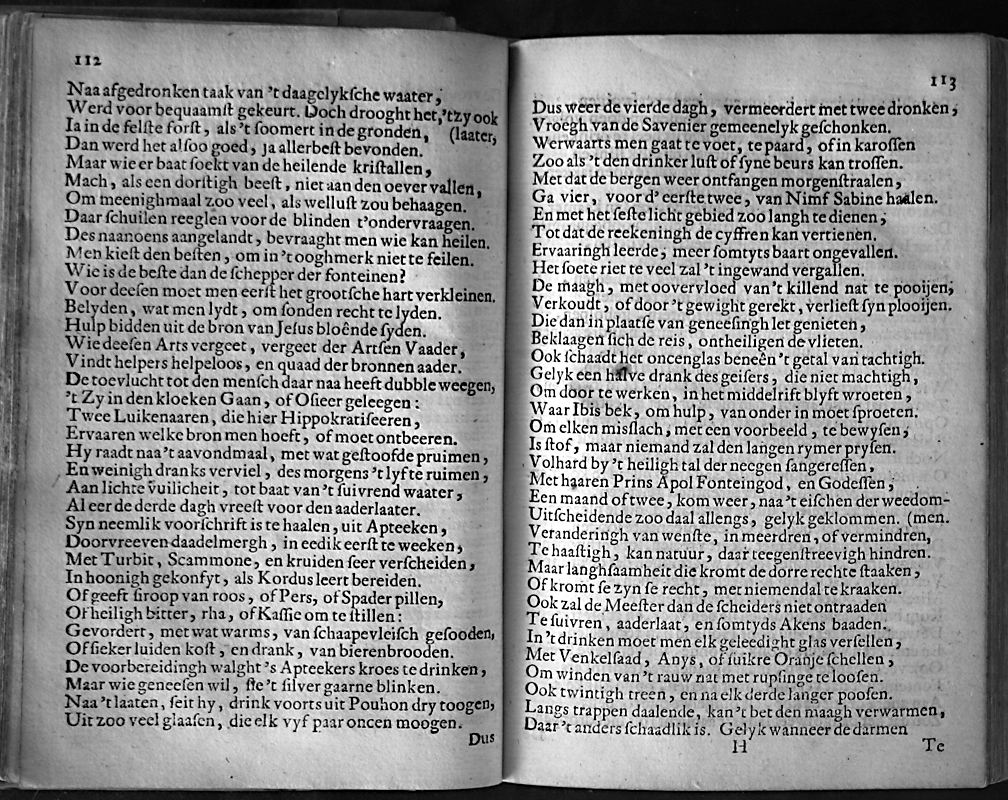 112
Naa afgedronken taak van 't daagelykſche waater,
Werd voor bequaamſt gekeurt. Doch drooght het, 'tzy ook
Ia in de felſte forſt, als 't ſoomert in de gronden, (laater,
Dan werd het alſoo goed, ja allerbeſt bevonden.
Maar wie er baat ſoekt van de heilende kriſtallen,
Mach, als een dorſtigh beeſt, niet aan den oever vallen,
Om meenighmaal zoo veel, als welluſt zou behaagen.
Daar ſchuilen reeglen voor de blinden t'ondervraagen.
Des naanoens aangelandt, bevraaght men wie kan heilen.
Men kieſt den beſten, om in 't ooghmerk niet te feilen.
Wie is de beſte dan de ſchepper der fonteinen?
Voor deeſen moet men eerſt het grootſche hart verkleinen.
Belyden, wat men lydt, om ſonden recht te lyden.
Hulp bidden uit de bron van Jeſus bloênde ſyden.
Wie deeſen Arts vergeet, vergeet der Artſen Vaader,
Vindt helpers helpeloos, en quaad der bronnen aader.
De toevlucht tot den menſch daar naa heeft dubble weegen,
't Zy in den kloeken Gaan, of Oſieer geleegen:
Twee Luikenaaren, die hier Hippokratiſeeren,
Ervaaren welke bron men hoeft, of moet ontbeeren.
Hy raadt naa 't aavondmaal, met wat geſtoofde pruimen,
En weinigh dranks verviel, des morgens 't lyf te ruimen,
Aan lichte vuilicheit, tot baat van 't ſuivrend waater,
Al eer de derde dagh vreeſt voor den aaderlaater.
Syn neemlik voorſchrift is te haalen, uit Apteeken,
Doorvreeven daadelmergh, in eedik eerſt te weeken,
Met Turbit, Scammone, en kruiden ſeer verſcheiden,
In hoonigh gekonfyt, als Kordus leert bereiden.
Of geeft ſiroop van roos, of Pers, of Spader pillen,
Of heiligh bitter, rha, of Kaſſie om te ſtillen:
Gevordert, met wat warms, van ſchaapevleiſch geſooden,
Of ſieker luiden koſt, en drank, van bierenbrooden.
De voorbereidingh walght 's Apteekers kroes te drinken,
Maar wie geneeſen wil, ſie 't ſilver gaarne blinken.
Naa 't laaten, ſeit hy, drink voorts uit Pouhon dry toogen,
Uit zoo veel glaaſen, die elk vyf paar oncen moogen.
Dus
113
Dus weer de vierde dagh, vermeerdert met twee dronken,
Vroegh van de Savenier gemeenelyk geſchonken.
Werwaarts men gaat te voet, te paard, of in karoſſen
Zoo als 't den drinker luſt of ſyne beurs kan troſſen.
Met dat de bergen weer ontfangen morgenſtraalen,
Ga vier, voor d' eerſte twee, van Nimf Sabine haalen.
En met het ſeſte licht gebied zoo langh te dienen,
Tot dat de reekeningh de cyffren kan vertienen.
Ervaaringh leerde, meer ſomtyts baart ongevallen.
Het ſoete riet te veel zal 't ingewand vergallen.
De maagh, met oovervloed van't killend nat te pooijen,
Verkoudt, of door 't gewight gerekt, verlieſt ſyn plooijen.
Die dan in plaatſe van geneeſingh let genieten,
Beklaagen ſich de reis, ontheiligen de vlieten.
Ook ſchaadt het oncenglas beneên 't getal van tachtigh.
Gelyk een halve drank des geiſers, die niet machtigh,
Om door te werken, in het middelrift blyft wroeten,
Waar Ibis bek, om hulp, van onder in moet ſproeten.
Om elken misſlach, met een voorbeeld, te bewyſen,
Is ſtof, maar niemand zal den langen rymer pryſen.
Volhard by 't heiligh tal der neegen ſangereſſen,
Met haaren Prins Apol Fonteingod, en Godeſſen,
Een maand of twee, kom weer, naa 't eiſchen der weedom-
Uitſcheidende zoo daal allengs, gelyk geklommen. (men.
Veranderingh van wenſte, in meerdren, of vermindren,
Te haaſtigh, kan natuur, daar teegenſtreevigh hindren.
Maar langhſaamheit die kromt de dorre rechte ſtaaken,
Of kromt ſe zyn ſe recht, met niemendal te kraaken.
Ook zal de Meeſter dan de ſcheiders niet ontraaden
Te ſuivren, aaderlaat, en ſomtyds Akens baaden.
In 't drinken moet men elk geleedight glas verſellen,
Met Venkelſaad, Anys, of ſuikre Oranje ſchellen,
Om winden van 't rauw nat met rupſinge te looſen.
Ook twintigh treen, en na elk derde langer pooſen.
Langs trappen daalende, kan 't bet den maagh verwarmen,
Daar 't anders ſchaadlik is. Gelyk wanneer de darmen
H
Te